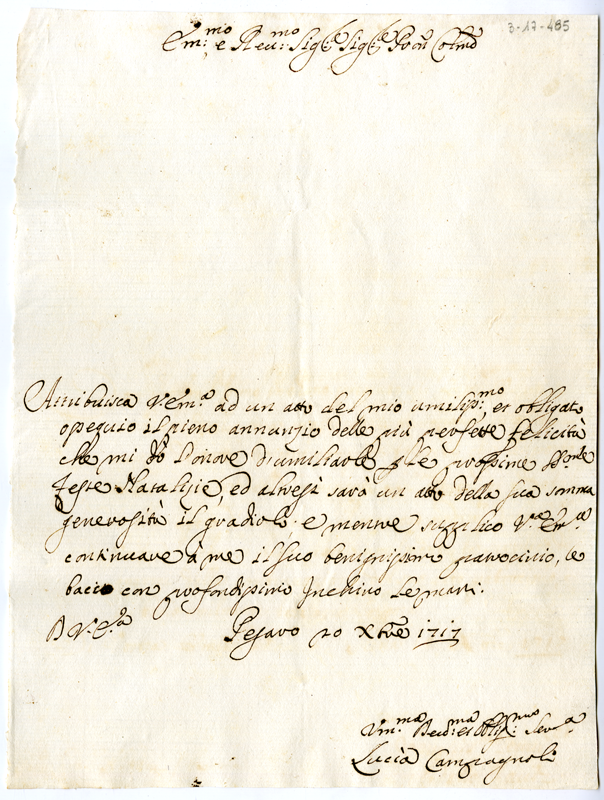 3-17-485
Em:mo e Reu:mo Sig:re Sig:re Pron Colmo
Attribuisca V: Em:a ad un atto del mio umiliss:mo et obligato
ossequio il pieno annunzio delle più perfette felicità
che mi dò l'onore d'umiliarle p le prossime SS:me
feste Natalizie, ed altresì sarà un atto della sua somma
generosità il gradirli: e mentre supplico V:ra Em:a
continuare à me il suo benignissimo patrocinio, le
bacio con profondissimo Inchino le mani.
D V: E:za Pesaro 20 Xbre 1717
Um:ma Deu:ma et Obligma Ser:a
Lucia Campagnoli